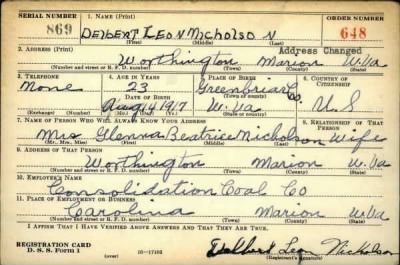 SERIAL NUMBER 1. NAME (Print) ORDER NUMBER
869 DELBERT LEON NICHOLSON 648
(First) (Middle) (Last)
2. ADDRESS (Print) Address Changed
Worthington Marion W.Va
(Number and street or R. F. D. number) (Town) (County) (State)
3. TELEPHONE 4. AGE IN YEARS 5. PLACE OF BIRTH 6. COUNTRY OF CITIZENSHIP
None 23 Greenbriar Co.
DATE OF BIRTH
Aug 14 1917 W. Va U S
(Exchange) (Number) (Mo.) (Day) (Yr.) (State or country)
7. NAME OF PERSON WHO WILL ALWAYS KNOW YOUR ADDRESS 8. RELATIONSHIP OF THAT PERSON
Mrs Glenna Beatrice Nicholson Wife
(Mr., Mrs., Miss) (First) (Middle) (Last)
9. ADDRESS OF THAT PERSON
Worthington Marion W.Va
(Number and street or R. F. D. number) (Town) (County) (State)
10. EMPLOYER'S NAME
Consolidation Coal Co
11. PLACE OF EMPLOYMENT OR BUSINESS
Carolina Marion W.Va
(Number and street or R. F. D. number) (Town) (County) (State)
I AFFIRM THAT I HAVE VERIFIED ABOVE ANSWERS AND THAT THEY ARE TRUE.
REGISTRATION CARD
D. S. S. Form 1 (over) 16-17105 Delbert Leon Nicholson
(Registrant's signature)